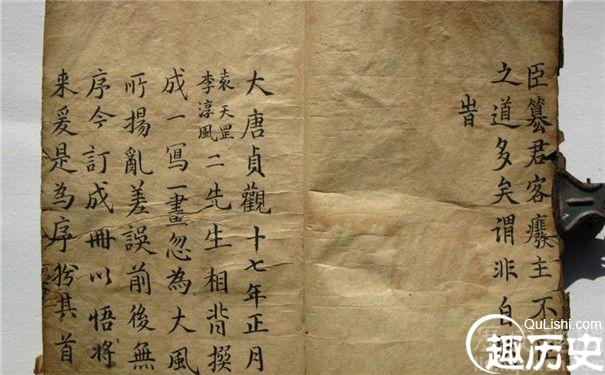 臣篡君客癈主不
之道多矣謂非自
旹
大唐貞觀十七年正月
袁天罡
李淳風
二先生相背撰
成一冩一畫忽為大風
所揚亂差誤前後無
序今訂成冊以悟將
来爰是為序於其首
QuLishi.com
趣历史